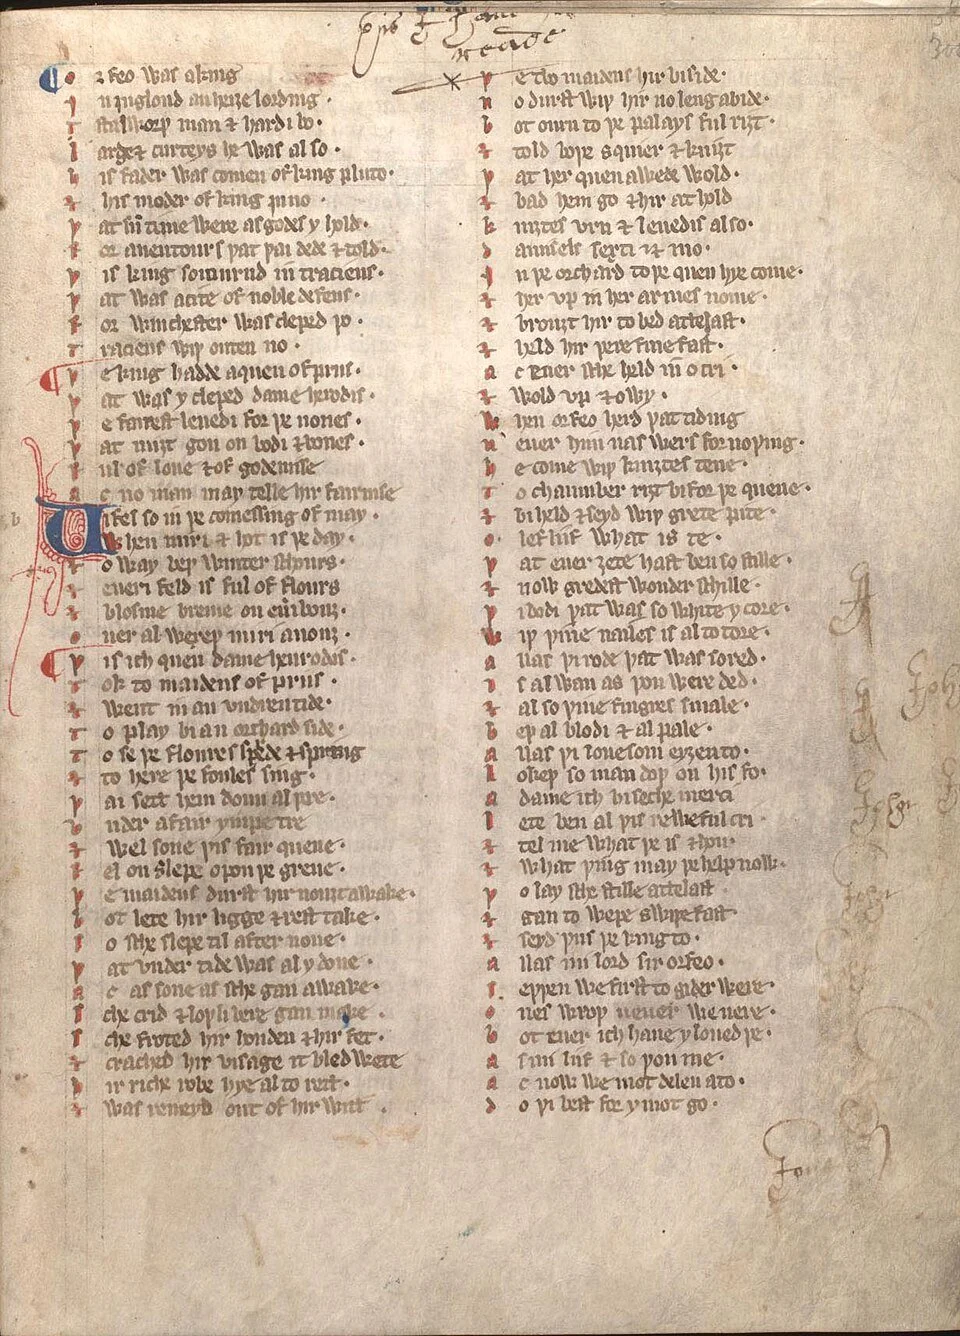 Orfeo was a king
In jnglond an heiȝe lording·
Stalworþ man & hardi bo·
Large & curteys he was al so·
His fader was comen of king pluto·
& his moder of king juno·
Þat su̅ time were as godes y hold·
For auentours þat þai dede & told·
Þis king soiournd in traciens·
Þat was a cite of noble defens·
For winchester was cleped þo·
Traciens wiþ outen no·
Þe king hadde a quen of priis·
Þat was y cleped dame herodis·
Þe fairest leuedi for þe nones·
Þat miȝt gon on bodi & bones·
Ful of loue & of godenisse
Ac no man may telle hir fairnise
Vifel so in þe comessing of may·
When miri & hot is þe day·
Oway beþ winter schours·
& eueri feld is ful of flours
& blosme breme on eu̅i bouȝ·
Ouer al wexeþ miri anouȝ·
Þis ich quen dame heurodis·
Tok to maidens of priis·
& went in an vndrentide·
To play bi an orchard side·
To se þe floures sprede & spring
& to here þe foules sing·
Þai sett hem doun al þre·
Vnder a fair ympe tre
& wel sone þis fair quene·
Fel on slepe opon þe grene·
Þe maidens durst hir nouȝt awake·
Bot lete hir ligge & rest take·
So sche slepe til after none·
Þat vnder tide was al y done·
Ac as sone as sche gan awake·
Sche crid & loþli bere gan make·
Sche froted hir honden & hir fet·
& crached hir visage it bled wete
Hir riche robe hye al to rett·
& was reueyd out of hir witt·
Þe tvo maidens hir biside·
No durst wiþ hir no leng abide·
Bot ourn to þe palays ful riȝt·
& told boþe squier & kniȝt
Þat her quen awede wold·
& bad hem go & hir at hold
Kniȝtes vrn & leuedis also·
Damisels sexti & mo·
In þe orchard to þe quen hye come·
& her vp in her armes nome·
& brouȝt hir to bed atte last·
& held hir þere fine fast·
Ac euer sche held in o cri·
& wold vp & owy·
When orfeo herd þat tiding
Neuer him nas wers for no þing·
He come wiþ kniȝtes tene·
To chaumber riȝt bifor þe quene·
& biheld & seyd wiþ grete pite·
O· lef liif what is te·
Þat euer ȝete hast ben so stille·
& now gredest wonder schille·
Þi bodi þat was so white y core·
Wiþ þine nailes is al to tore·
Allas þi rode þat was so red·
Is al wan as þou were ded·
& al so þine fingres smale·
Beþ al blodi & al pale·
Allas þi louesom eyȝen to·
Lokeþ so man doþ on his fo·
A dame ich biseche merci
Lete ben al þis reweful cri·
& tel me what þe is & hou·
& what þing may þe help now·
Þo lay sche stille atte last
& gan to wepe swiþe fast·
& seyd þus þe king to·
Allas mi lord sir orfeo·
Seþþen we first to gider were·
Ones wroþ neuer we nere·
Bot euer ich haue y loued þe·
As mi liif & so þou me·
Ac now we mot delen ato·
Do þi best for y mot go·